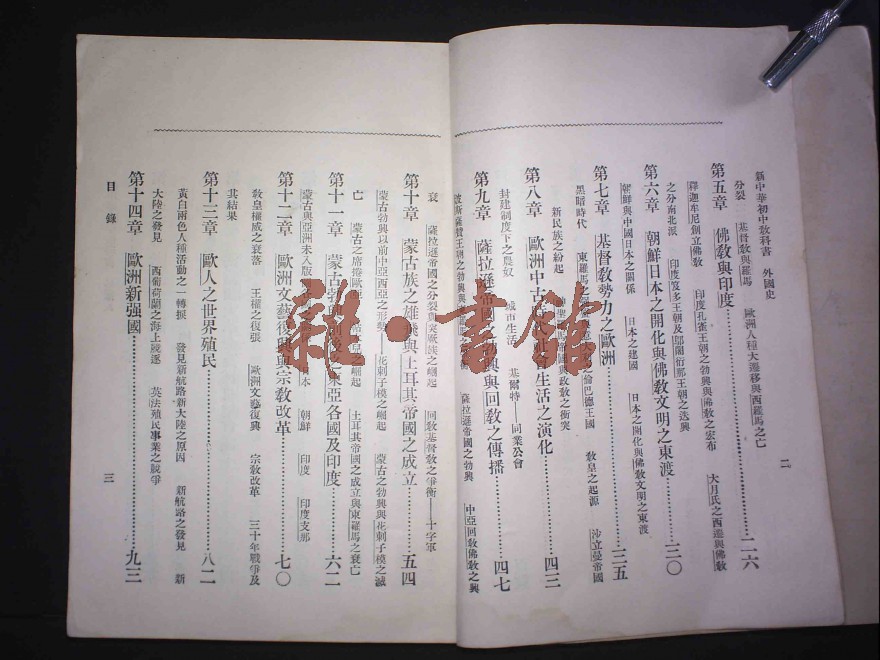 新中華初中教科書　外國史
二
分裂　基督教與羅馬　歐洲人種大遷移與西羅馬之亡
第五章　佛教與印度………二六
釋迦牟尼創立佛教　印度孔雀王朝之勃興與佛教之宏布　大月氏之西遷與佛教
之分南北派　印度笈多王朝及鄔闍衍那王朝之迭興
第六章　朝鮮日本之開化與佛教文明之東渡………三〇
朝鮮與中國日本之關係　日本之建國　日本之開化與佛教文明之東渡
第七章　基督教勢力之歐洲………三五
黑暗時代　東羅馬之　倫巴德王國　教皇之起源　沙立曼帝國
新民族之紛起　神聖羅馬帝國與政教之衝突
第八章　歐洲中古　社會生活之演化………四三
封建制度下之農奴　城市生活　基爾特——同業公會
第九章　薩拉遜帝國之勃興與回教之傳播………四七
波斯薩贊王朝之勃興與　薩拉遜帝國之勃興　中亞回教佛教之興
衰　薩拉遜帝國之分裂與突厥族之崛起　回教基督教之爭衡——十字軍
第十章　蒙古族之雄飛與土耳其帝國之成立………五四
蒙古勃興以前中亞西亞之形勢——花剌子模之崛起　蒙古之勃興與花剌子模之滅
亡　蒙古之席捲歐亞　之崛起　土耳其帝國之成立與東羅馬之衰亡
第十一章　蒙古勃興前後之東亞各國及印度………六二
蒙古與亞洲未入版　日本　朝鮮　印度　印度支那
第十二章　歐洲文藝復興與宗教改革………七〇
教皇權威之衰落　王權之復張　歐洲文藝復興　宗教改革　三十年戰爭及
其結果
第十三章　歐人之世界殖民………八二
黃白兩色人種活動之一轉捩　發見新航路新大陸之原因　新航路之發見　新
大陸之發見　西葡荷蘭之海上競逐　英法殖民事業之競爭
第十四章　歐洲新強國………九三
目錄
三
雜·書館